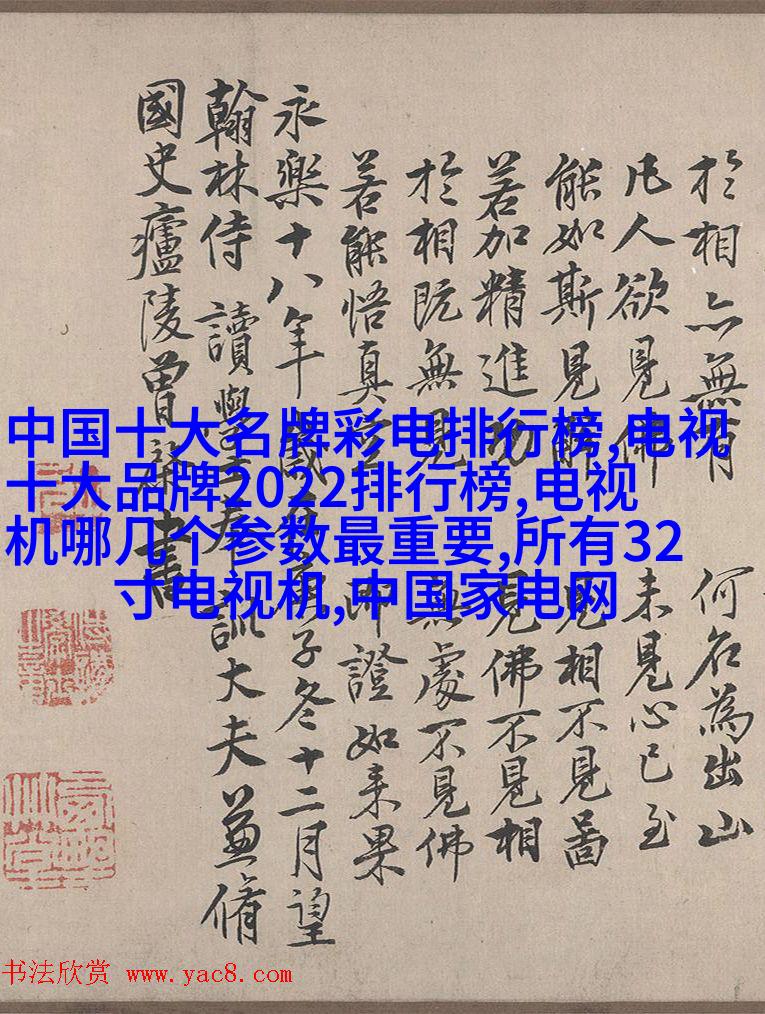 於相亦無有 何名為出山
凡人欲見佛 未見心已至
能如斯見解 見相不見啚
若加精進功 見佛不見相
於相既無見 無處不見佛
若能悟真空 即證如来果
永樂十八年歲在庚子冬十二月望
翰林侍讀學士奉訓大夫兼脩
國史廬陵曾棨書
中国十大名牌彩电排行榜,电视
十大品牌2022排行榜,电视
机哪几个参数最重要,所有32
寸电视机,中国家电网
书法欣赏 www.yac8.com